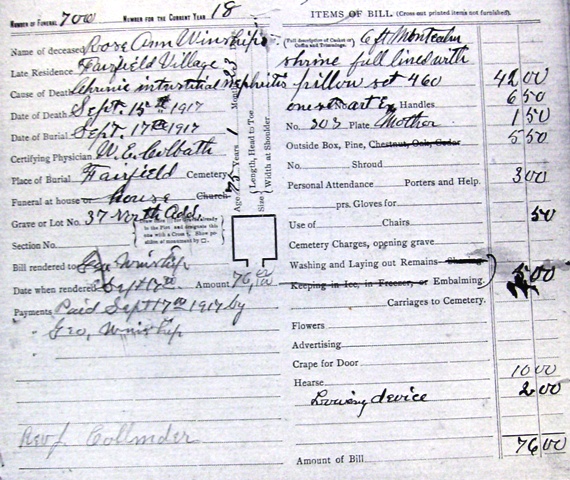 NUMBER OF FUNERAL 700 NUMBER FOR THE CURRENT YEAR 18
Name of deceased Rose Ann Winship
Late Residence Fairfield Village
Cause of Death Chronic interstitial Nephritis
Date of Death Sept. 15th 1917
Date of Burial Sept. 17th 1917
Certifying Physician W. E. Colbath
Place of Burial Fairfield Cemetery
Funeral at house or house Church
Grave or Lot No. 37 North Add.
Section No.
Bill rendered to Geo Winship
Date when rendered Sept 17th Amount 76,00
Payments Paid Sept 17th 1917 by
" Geo, Winship
Rev J Collinder
Age 75 Years 1 Months 23
Size { Length, Head to Toe
Width at Shoulder
ITEMS OF BILL (Cross out printed items not furnished).
(Full description of Casket or Coffin and Trimmings.) 6 ft Montcalm
shrine full lined with
pillow set 460 42 00
one set Handles 6 50
No. 303 Plate Mother 1 50
Outside Box, Pine, Chestnut, Oak, Cedar 5 50
No. Shroud
Personal Attendance Porters and Help. 3 00
prs. Gloves for
Use of Chairs 50
Cemetery Charges, opening grave
Washing and Laying out Remains
Keeping in Ice, in Freezer, or Embalming. 5 00
Carriages to Cemetery.
Flowers
Advertising
Crape for Door
Hearse 10 00
Lowering device 2 00
Amount of Bill 76 00